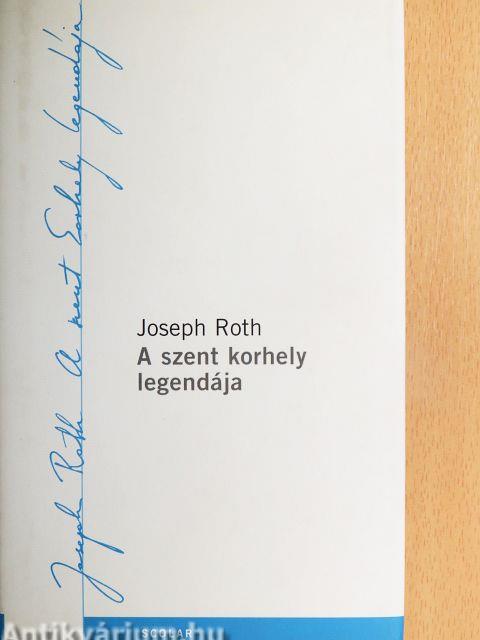 Joseph Roth A szent korhely legendája
Joseph Roth
A szent korhely
legendája
SCOLAR
Antikvárium.hu